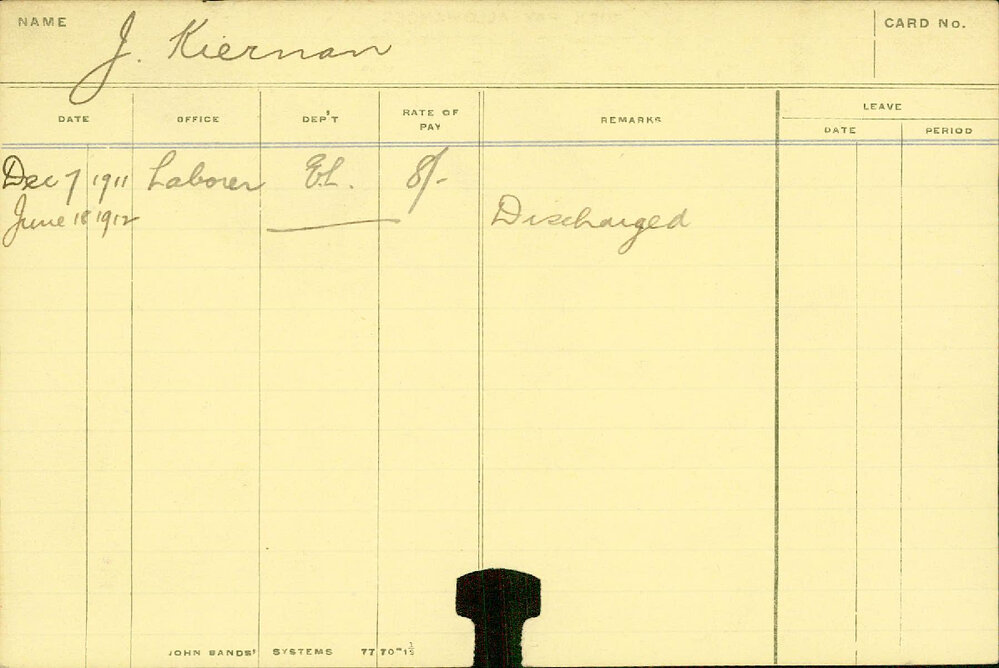 NAME J. Kiernan CARD No.
DATE OFFICE DEP'T RATE OF PAY REMARKS LEAVE
DATE PERIOD
Dec 7 1911 Laborer E.L. 8/-
June 18 1912 Discharged
JOHN SANDS' SYSTEMS